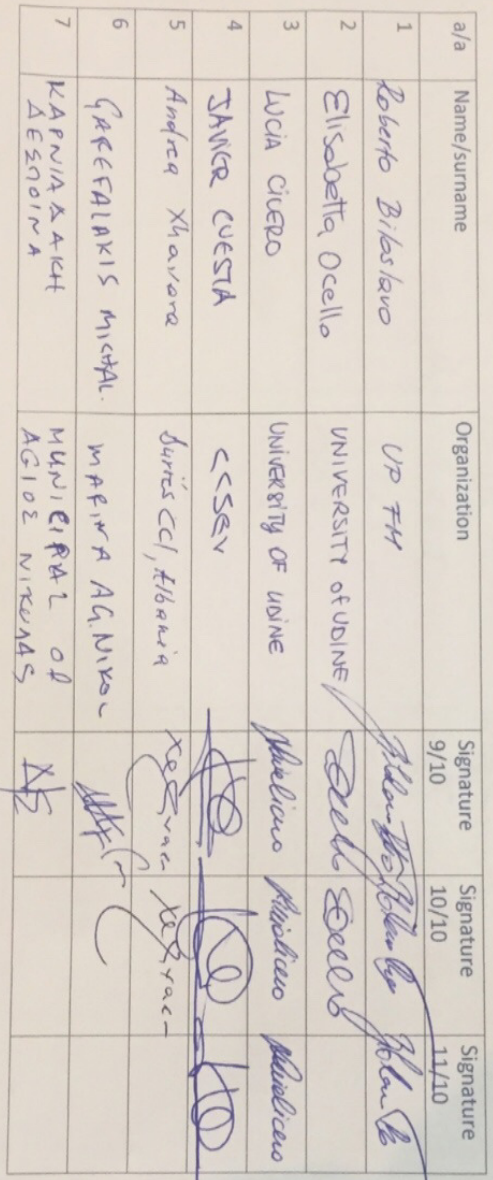 a/a Name/surname Organization Signature 9/10 Signature 10/10 Signature 11/10
1 Roberto Biloslavo UP FM
2 Elisabetta Ocello UNIVERSITY of UDINE
3 LUCIA CICERO UNIVERSITY OF UDINE
4 JAVIER CUESTA CCSEV
5 Andrea Xhavara Durrës CCI, Albania
6 GAREFALAKIS MICHAL. MARINA AG. NIKOL
7 ΚΑΡΝΙΑΔΑΚΗ ΔΕΣΠΟΙΝΑ MUNICIPAL OF ΑΓΙΟΣ ΝΙΚΟΛΑΣ